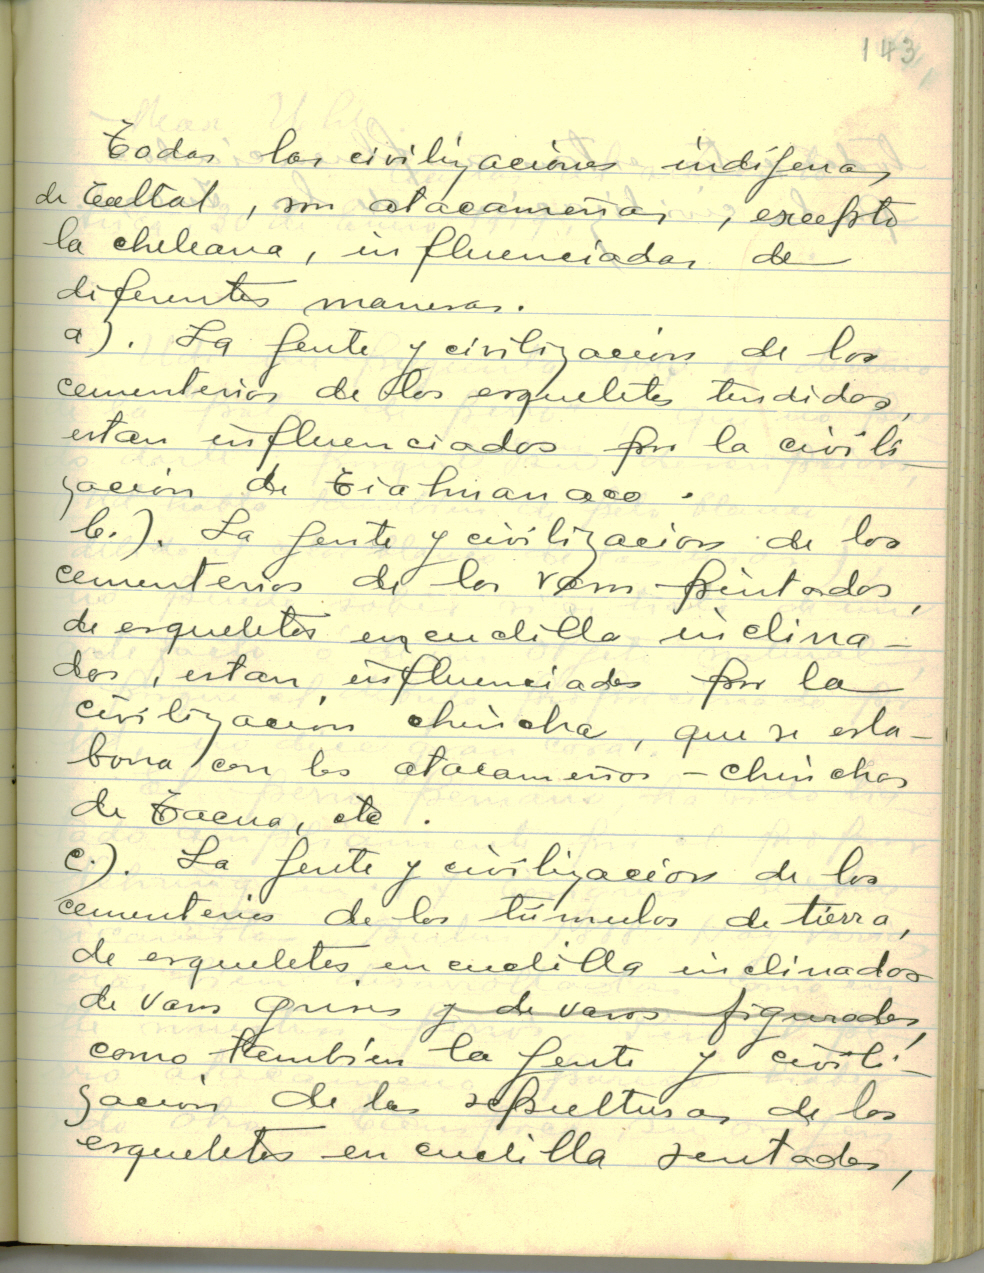 143
Todas las civilizaciones indígenas
de Taltal, son atacameñas, excepto
la cheleana, influenciadas de
diferentes maneras.
a). La gente y civilización de los
cementerios de los esqueletos tendidos,
estan influenciados por la civili
zación de Tiahuanaco.
b.). La gente y civilización de los
cementerios de los vasos pintados,
de esqueletos en cuclilla inclina-
dos, estan influenciados por la
civilización chincha, que se esla-
bona con los atacameños-chinchas
de Tacna, etc.
c.). La gente y civilización de los
cementerios de los túmulos de tierra,
de esqueletos en cuclilla inclinados
de vasos grises y de vasos figurados,
como tambien la gente y civili-
zación de las sepulturas de los
esqueletos en cuclilla sentados,